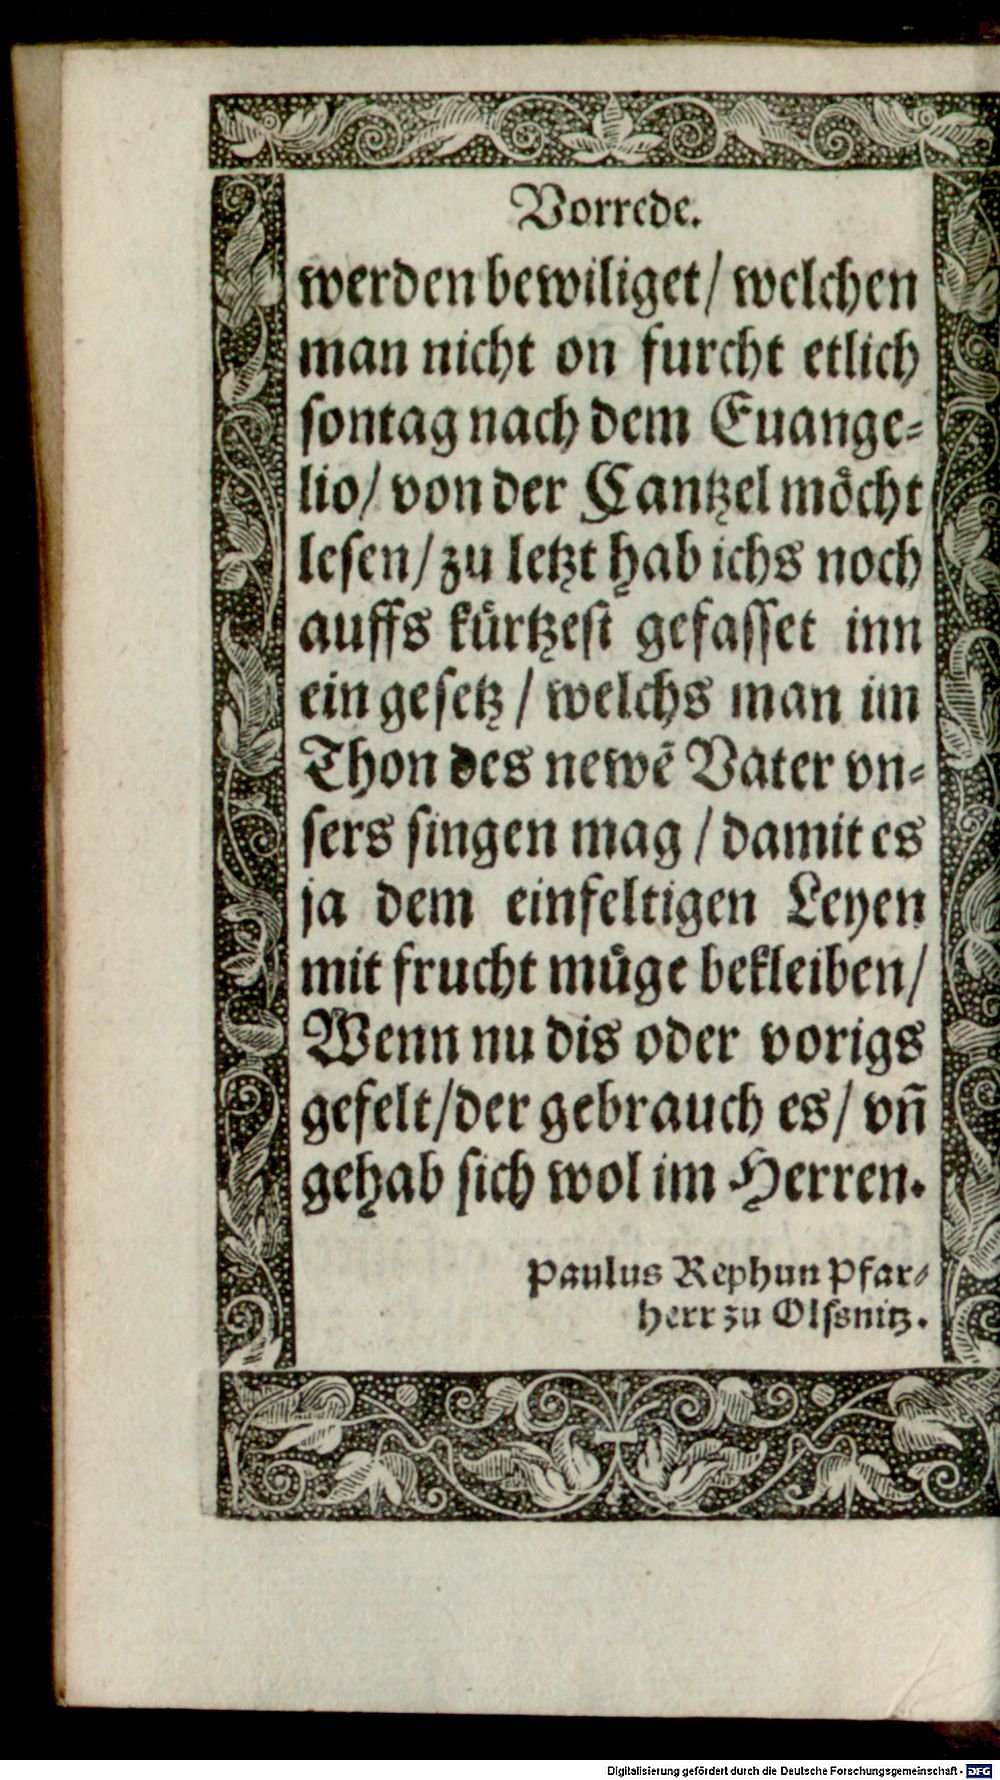 Vorrede.
werden bewiliget/ welchen
man nicht on furcht etlich
ſontag nach dem Euange⸗
lio/ von der Cantzel moͤcht
leſen/ zu letzt hab ichs noch
auffs kuͤrtzeſt gefaſſet inn
ein geſetz / welchs man im
Thon des newẽ Vater vn⸗
ſers ſingen mag / damit es
ja dem einfeltigen Leyen
mit frucht muͤge bekleiben/
Wenn nu dis oder vorigs
gefelt/der gebrauch es/ vñ
gehab ſich wol im Herren.
Paulus Rephun Pfar⸗
herr zu Olſsnitz.
Digitalisierung gefördert durch die Deutsche Forschungsgemeinschaft - DFG